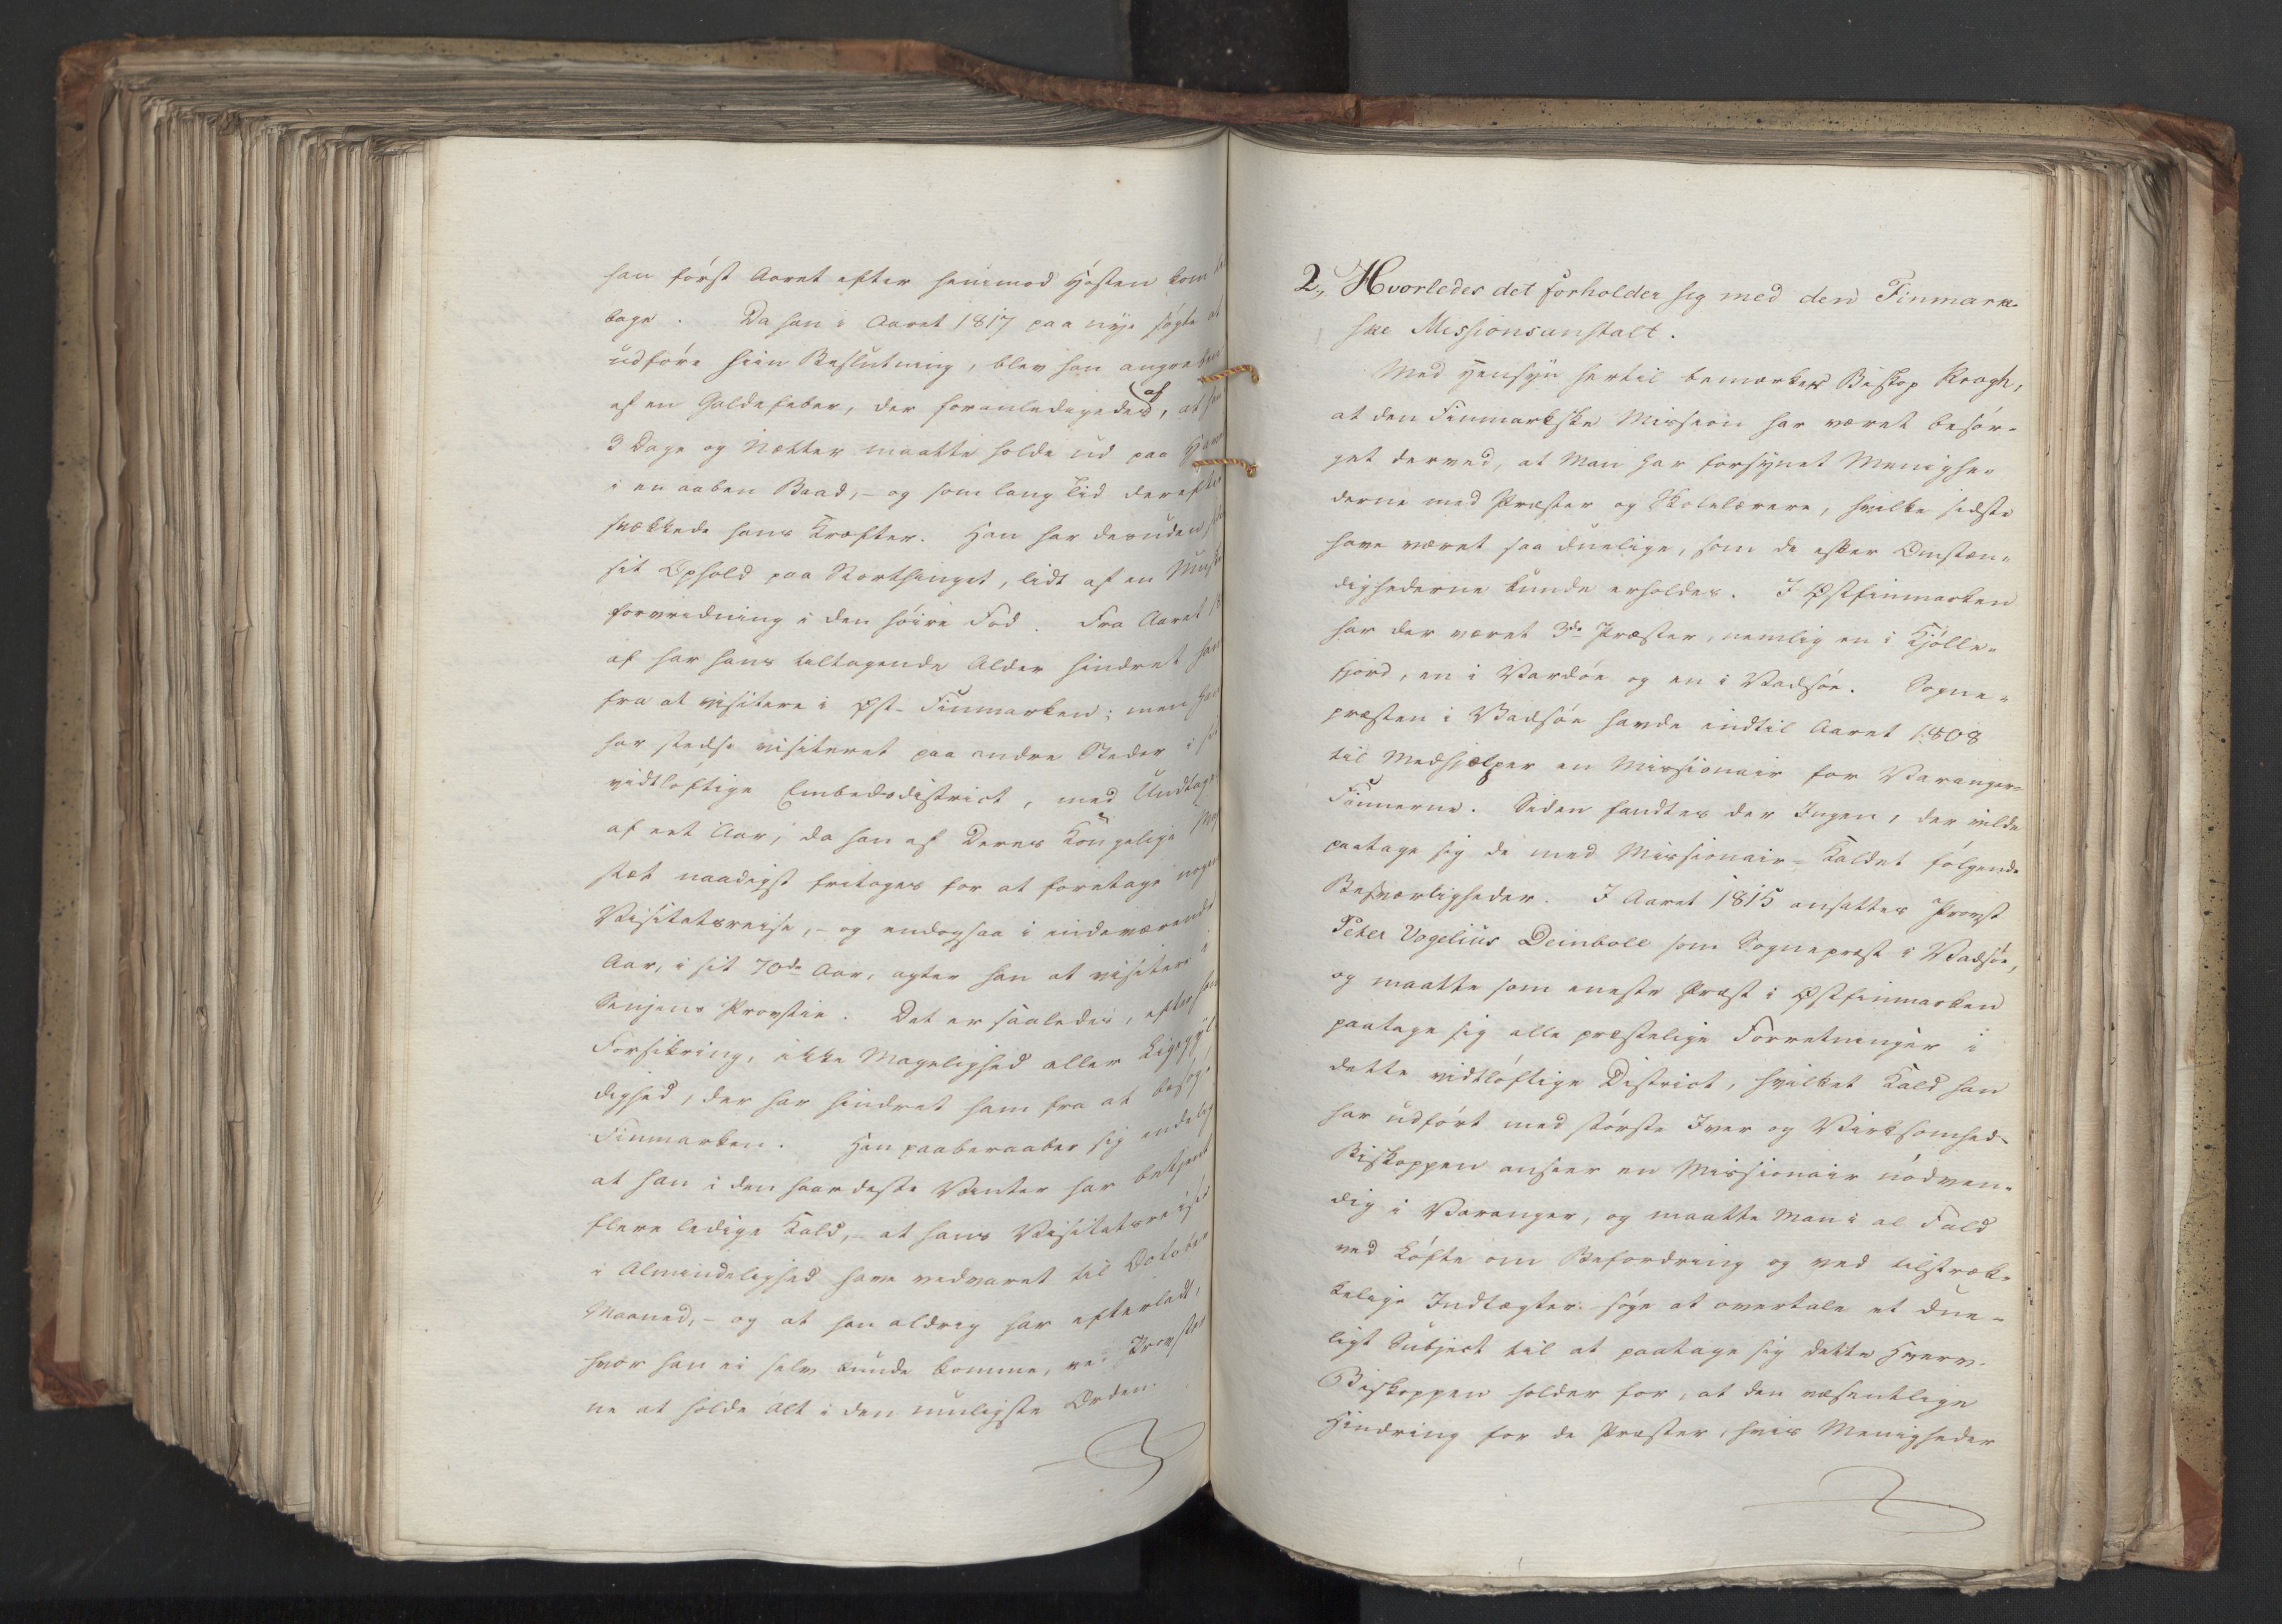 han först Aaret efter henimod Hösten kom
bage. Da han i Aaret 1817 paa nye sögte at
udföre hiin Beslutning, blev han angreben
af en Galdefeber, der foranledigedes af, at han
3 Dage og Nætter maatte holde ud paa
i en aaben Baad, - og som lang Tid derefter
svækkede hans Kræfter. Han har desuden
sit Ophold paa Storthinget, lidt af en
forvridning i den höire Fod. Fra Aaret
af har hans tiltagende Alder hindret ham
fra at visitere i Øst-Finmarken; men han
har stedse visiteret paa andre Steder i sit
vidtlöftige Embedsdistrict, med Undtagel
af eet Aar, da han af Deres Kongelige Maj
stæt naadigst fritoges for at foretage nogen
Visitatsreise, - og endogsaa i indeværende
Aar, i sit 70de Aar, agter han at visitere i
Senjens Provstie. Det er saaledes, efter hans
Forsikring, ikke Magelighed eller Ligegyl
dighed, der har hindret ham fra at besöge
Finmarken. Han paaberaaber sig endelig
at han i den haardeste Vinter har betjent
flere ledige Kald, - at hans Visitatsreiser
i Almindelighed have vedvaret til October
Maaned, - og at han aldrig har efterladt,
hvor han ei selv kunde komme, ved Provster
ne at holde Alt i den muligste Orden.
2, Hvorledes det forholder sig med den Finmark-
ske Missionsanstalt.
Med Hensyn hertil bemærker Biskop Krogh,
at den Finmarkske Mission har været besör-
get derved, at Man har forsynet Menighe-
derne med Præster og Skolelærere, hvilke sidste
have været saa duelige, som de efter Omstæn-
dighederne kunde erholdes. I Østfinmarken
har der været 3de Præster, nemlig en i Kjölle-
fjord, en i Vardöe og en i Vadsöe. Sogne-
præsten i Vadsöe havde indtil Aaret 1808
til Medhjælper en Missionair for Varanger-
Finnerne. Siden fandtes der Ingen, der vilde
paatage sig de med Missionair-Kaldet fölgende
Besværligheder. I Aaret 1815 ansattes Provst
Peter Vogelius Deinboll som Sognepræst i Vadsöe,
og maatte som eneste Præst i Østfinmarken
paatage sig alle præstelige Forretninger i
dette vidtlöftige District, hvilket Kald han
har udfört med störste Iver og Virksomhed.
Biskoppen anseer en Missionair nödven-
dig i Varanger, og maatte Man i al Fald
ved Löfte om Befordring og ved tilstræk-
kelige Indtægter söge at overtale et due-
ligt Subject til at paatage sig dette Hverv.
Biskoppen holder for, at den væsentlige
Hindring for de Præster, hvis Menigheder